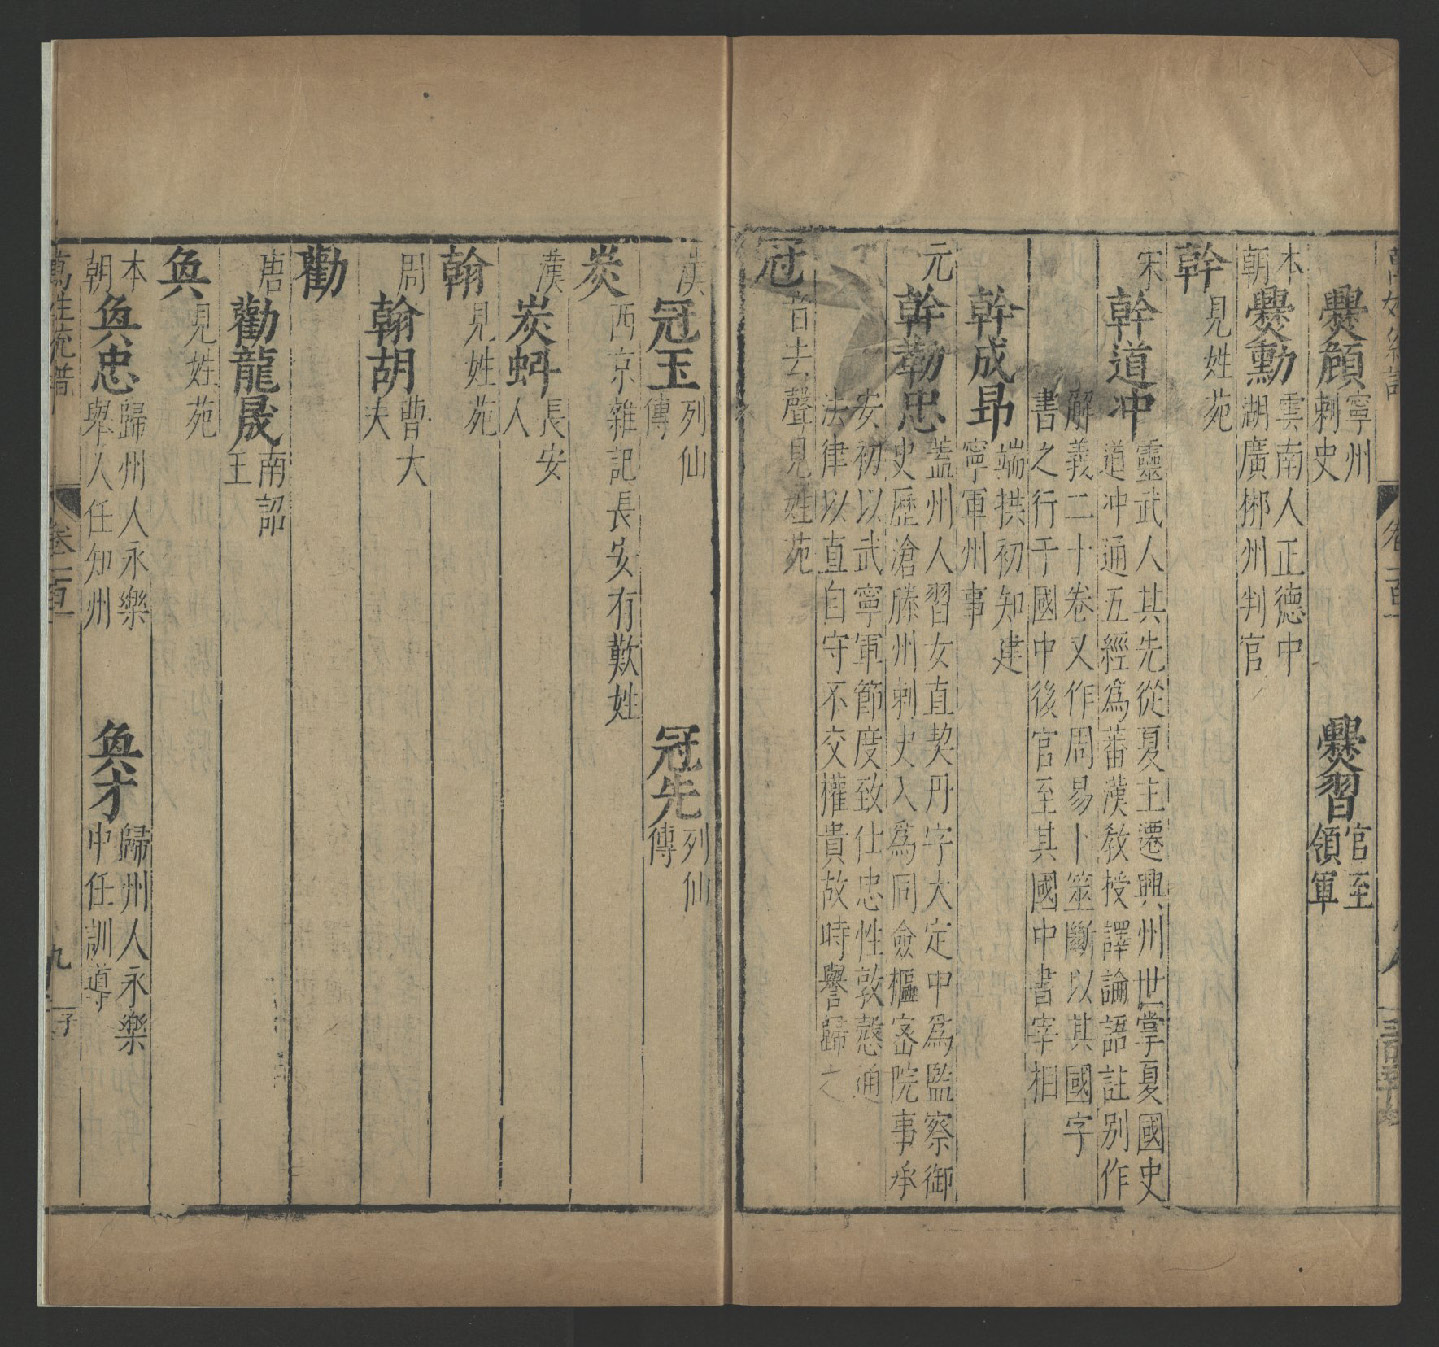 爨頠寧州刺史 爨習官至領軍
本朝 爨勳雲南人正德中湖廣郴州判官
幹見姓苑
宋 幹道冲靈武人其先從夏主遷興州世掌夏國史道冲通五經爲蕃漢教授譯論語註别作
解義二十卷又作周易卜筮斷以其國字書之行于國中後官至其國中書宰相
幹成昂端拱初知建寧軍州事
元 幹勒忠蓋州人習女直契丹字大定中爲監察御史歷滄滕州刺史入爲同僉樞宻院事承
安初以武寧軍節度致仕忠性敦慤通法律以直自守不交權貴故時譽歸之
冠音去聲見姓苑
漢 冠玉列仙傳 冠先列仙傳
炭西京雜記長安有歎姓
漢 炭虯長安人
翰見姓苑
周 翰胡曹大夫
勸
唐 勸龍晟南詔王
奐見姓苑
本朝 奐忠歸州人永樂舉人任知州 奐才歸州人永樂中任訓導
萬姓統譜 卷一百一 九 子